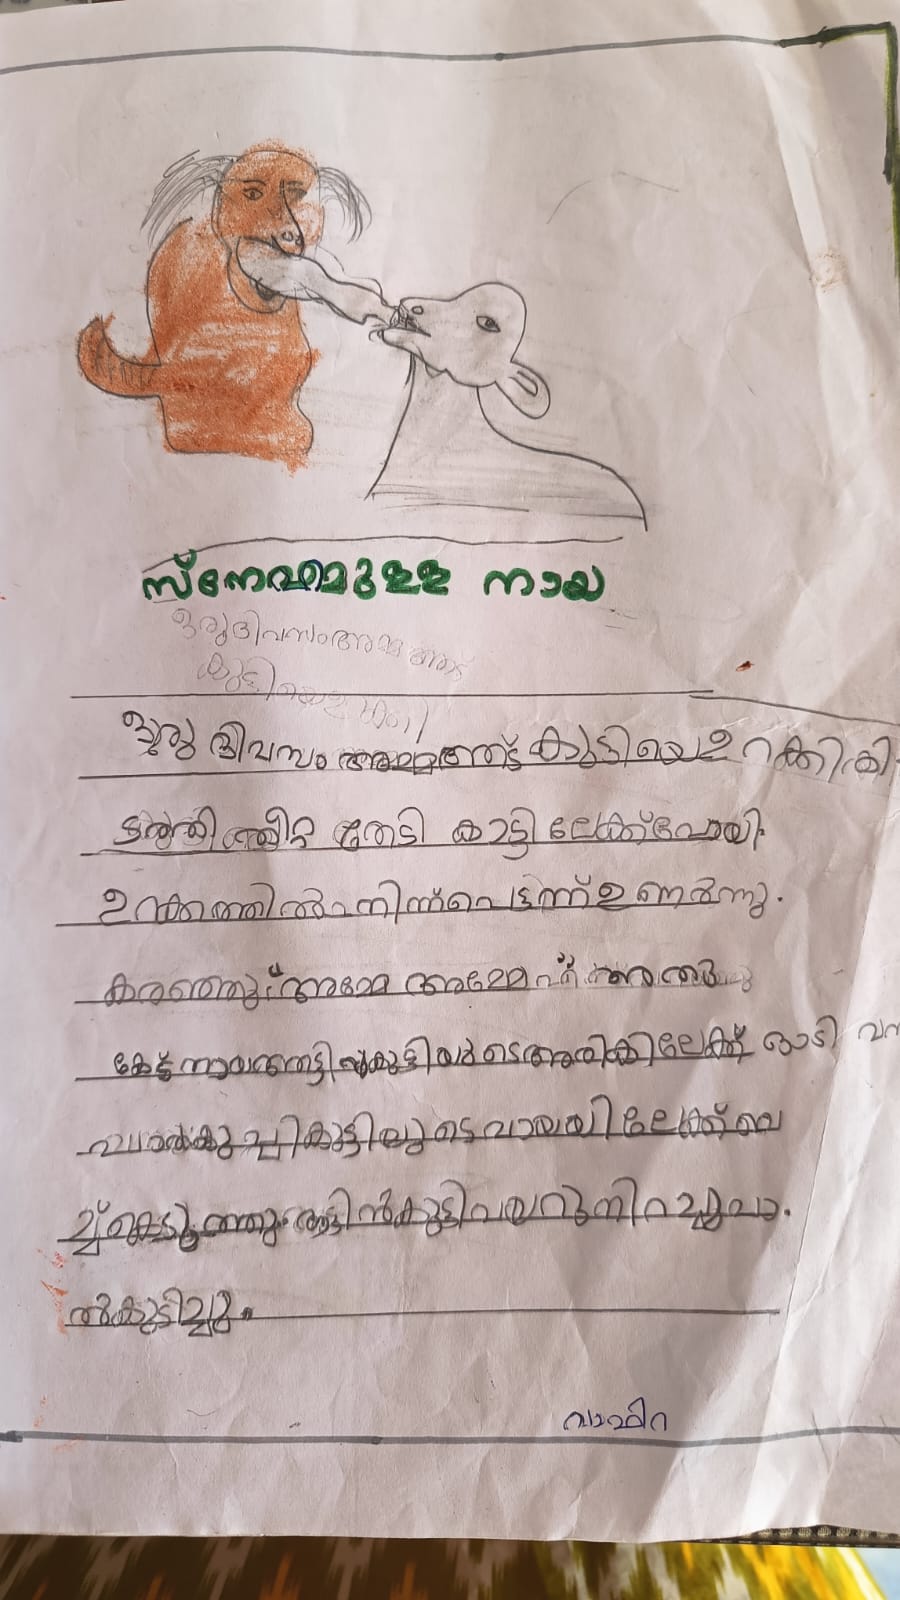 സ്നേഹമുള്ള നായ
ഒരുദിവസംഅമ്മത്താട്
കുട്ടിയെഉറക്കി
ഒരു ദിവസം അമ്മത്താട് കുട്ടിയെഉറക്കികി
ടത്തി തീറ്റ തേടി കാട്ടിലേക്ക്പോയി.
ഉറക്കത്തിൽനിന്ന്പെട്ടന്ന്ഉണർന്നു.
കരഞ്ഞു അമ്മേ അമ്മേ
കേട്ട കുട്ടിയുടെഅരികിലേക്ക് ഓടി വന്ന
പാൽകുപ്പികുട്ടിയുടെവായയിലേക്ക്വെ
ച്ച്കൊടുത്തു.ആട്ടിൻകുട്ടിവയറുനിറച്ചുപാ.
ൽകുടിച്ചു.